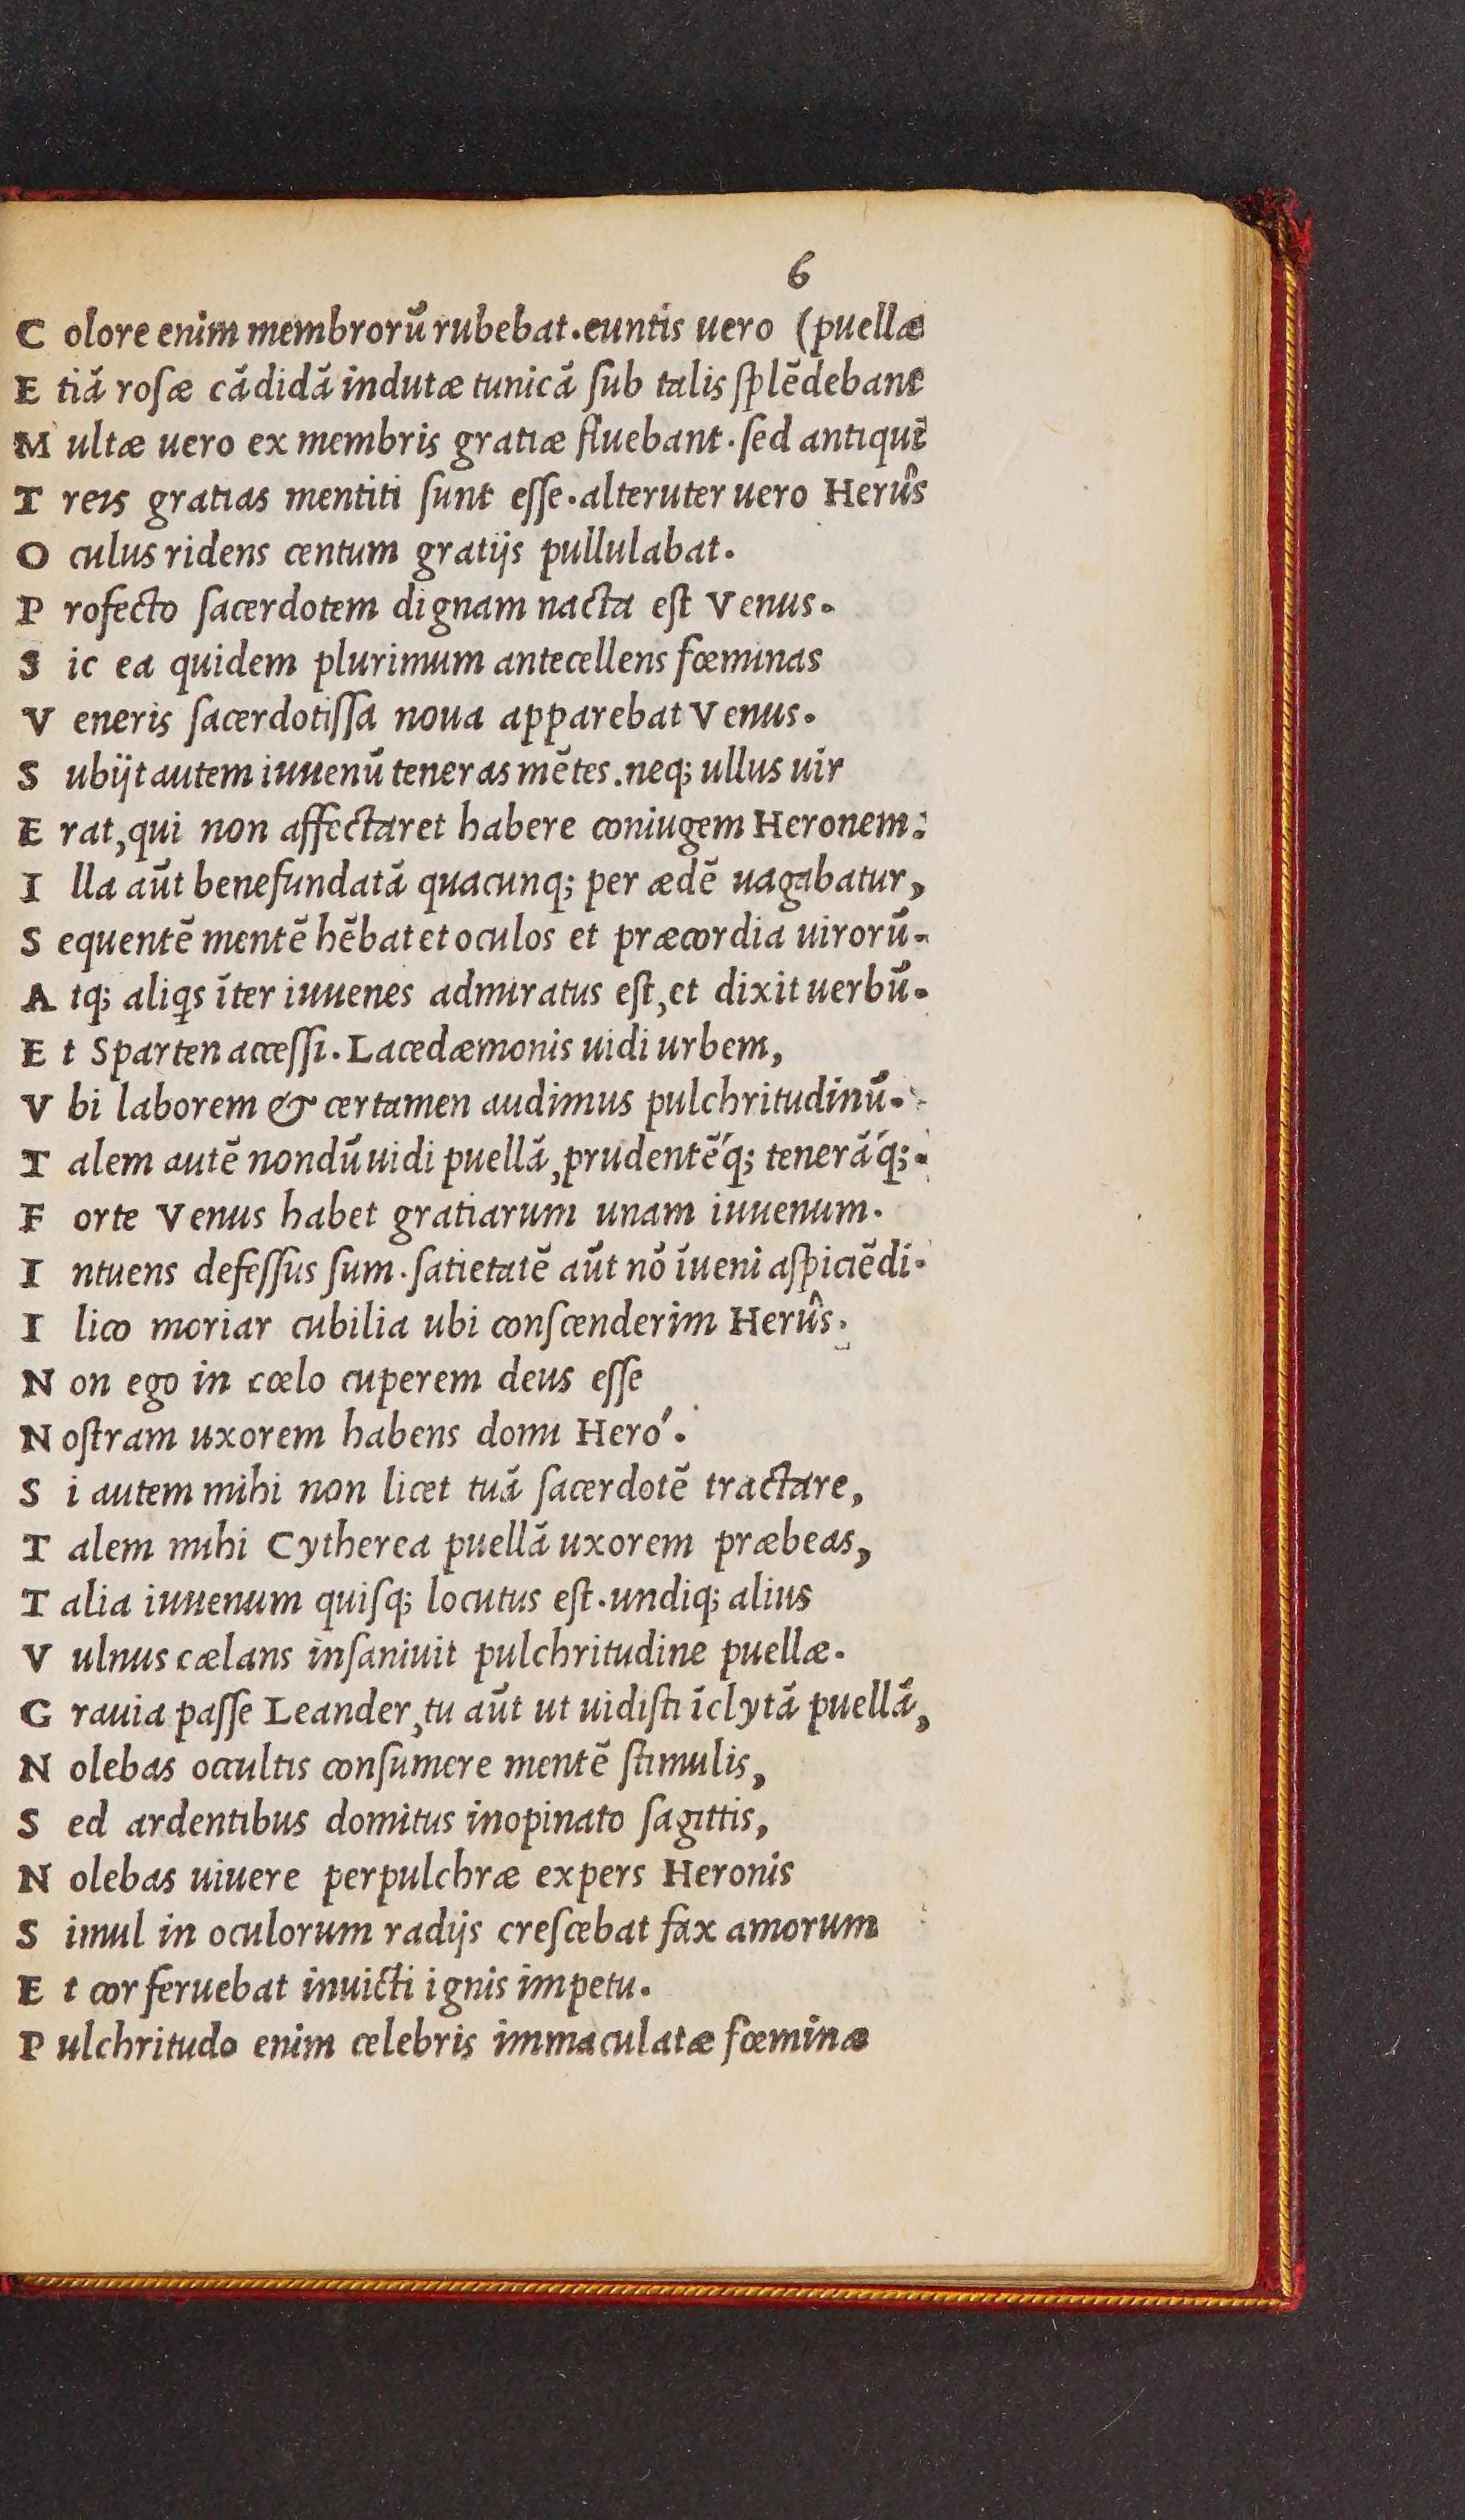 6
C olore enim membrorū rubebat. euntis uero (puellæ
E tiā rosæ cādidā indutæ tunicā sub talis splēdebant
M ultæ uero ex membris gratiæ fluebant. sed antiqui
T reis gratias mentiti sunt esse. alteruter uero Herûs
O culus ridens centum gratijs pullulabat.
P rofecto sacerdotem dignam nacta est Venus.
S ic ea quidem plurimum antecellens fœminas
V eneris sacerdotissa noua apparebat Venus.
S ubijt autem iuuenū teneras mētes. neq; ullus uir
E rat, qui non affectaret habere coniugem Heronem:
I lla aūt benefundatā quacunq; per ædē uagabatur,
S equentē mentē hēbat et oculos et præcordia uirorū.
A tq; aliqs īter iuuenes admiratus est, et dixit uerbū.
E t Sparten accessi. Lacedæmonis uidi urbem,
V bi laborem & certamen audimus pulchritudinū.
T alem autē nondū uidi puellā, prudentēq́; tenerāq́;.
F orte Venus habet gratiarum unam iuuenum.
I ntuens defessus sum. satietatē aūt nō īueni aspiciēdi.
I lico moriar cubilia ubi conscenderim Herûs.
N on ego in cœlo cuperem deus esse
N ostram uxorem habens domi Heró.
S i autem mihi non licet tuā sacerdotē tractare,
T alem mihi Cytherea puellā uxorem præbeas,
T alia iuuenum quisq; locutus est. undiq; alius
V ulnus cælans insaniuit pulchritudine puellæ.
G rauia passe Leander, tu aūt ut uidisti īclytā puellā,
N olebas occultis consumere mentē stimulis,
S ed ardentibus domitus inopinato sagittis,
N olebas uiuere perpulchræ expers Heronis
S imul in oculorum radijs crescebat fax amorum
E t cor feruebat inuicti ignis impetu.
P ulchritudo enim celebris immaculatæ fœminæ